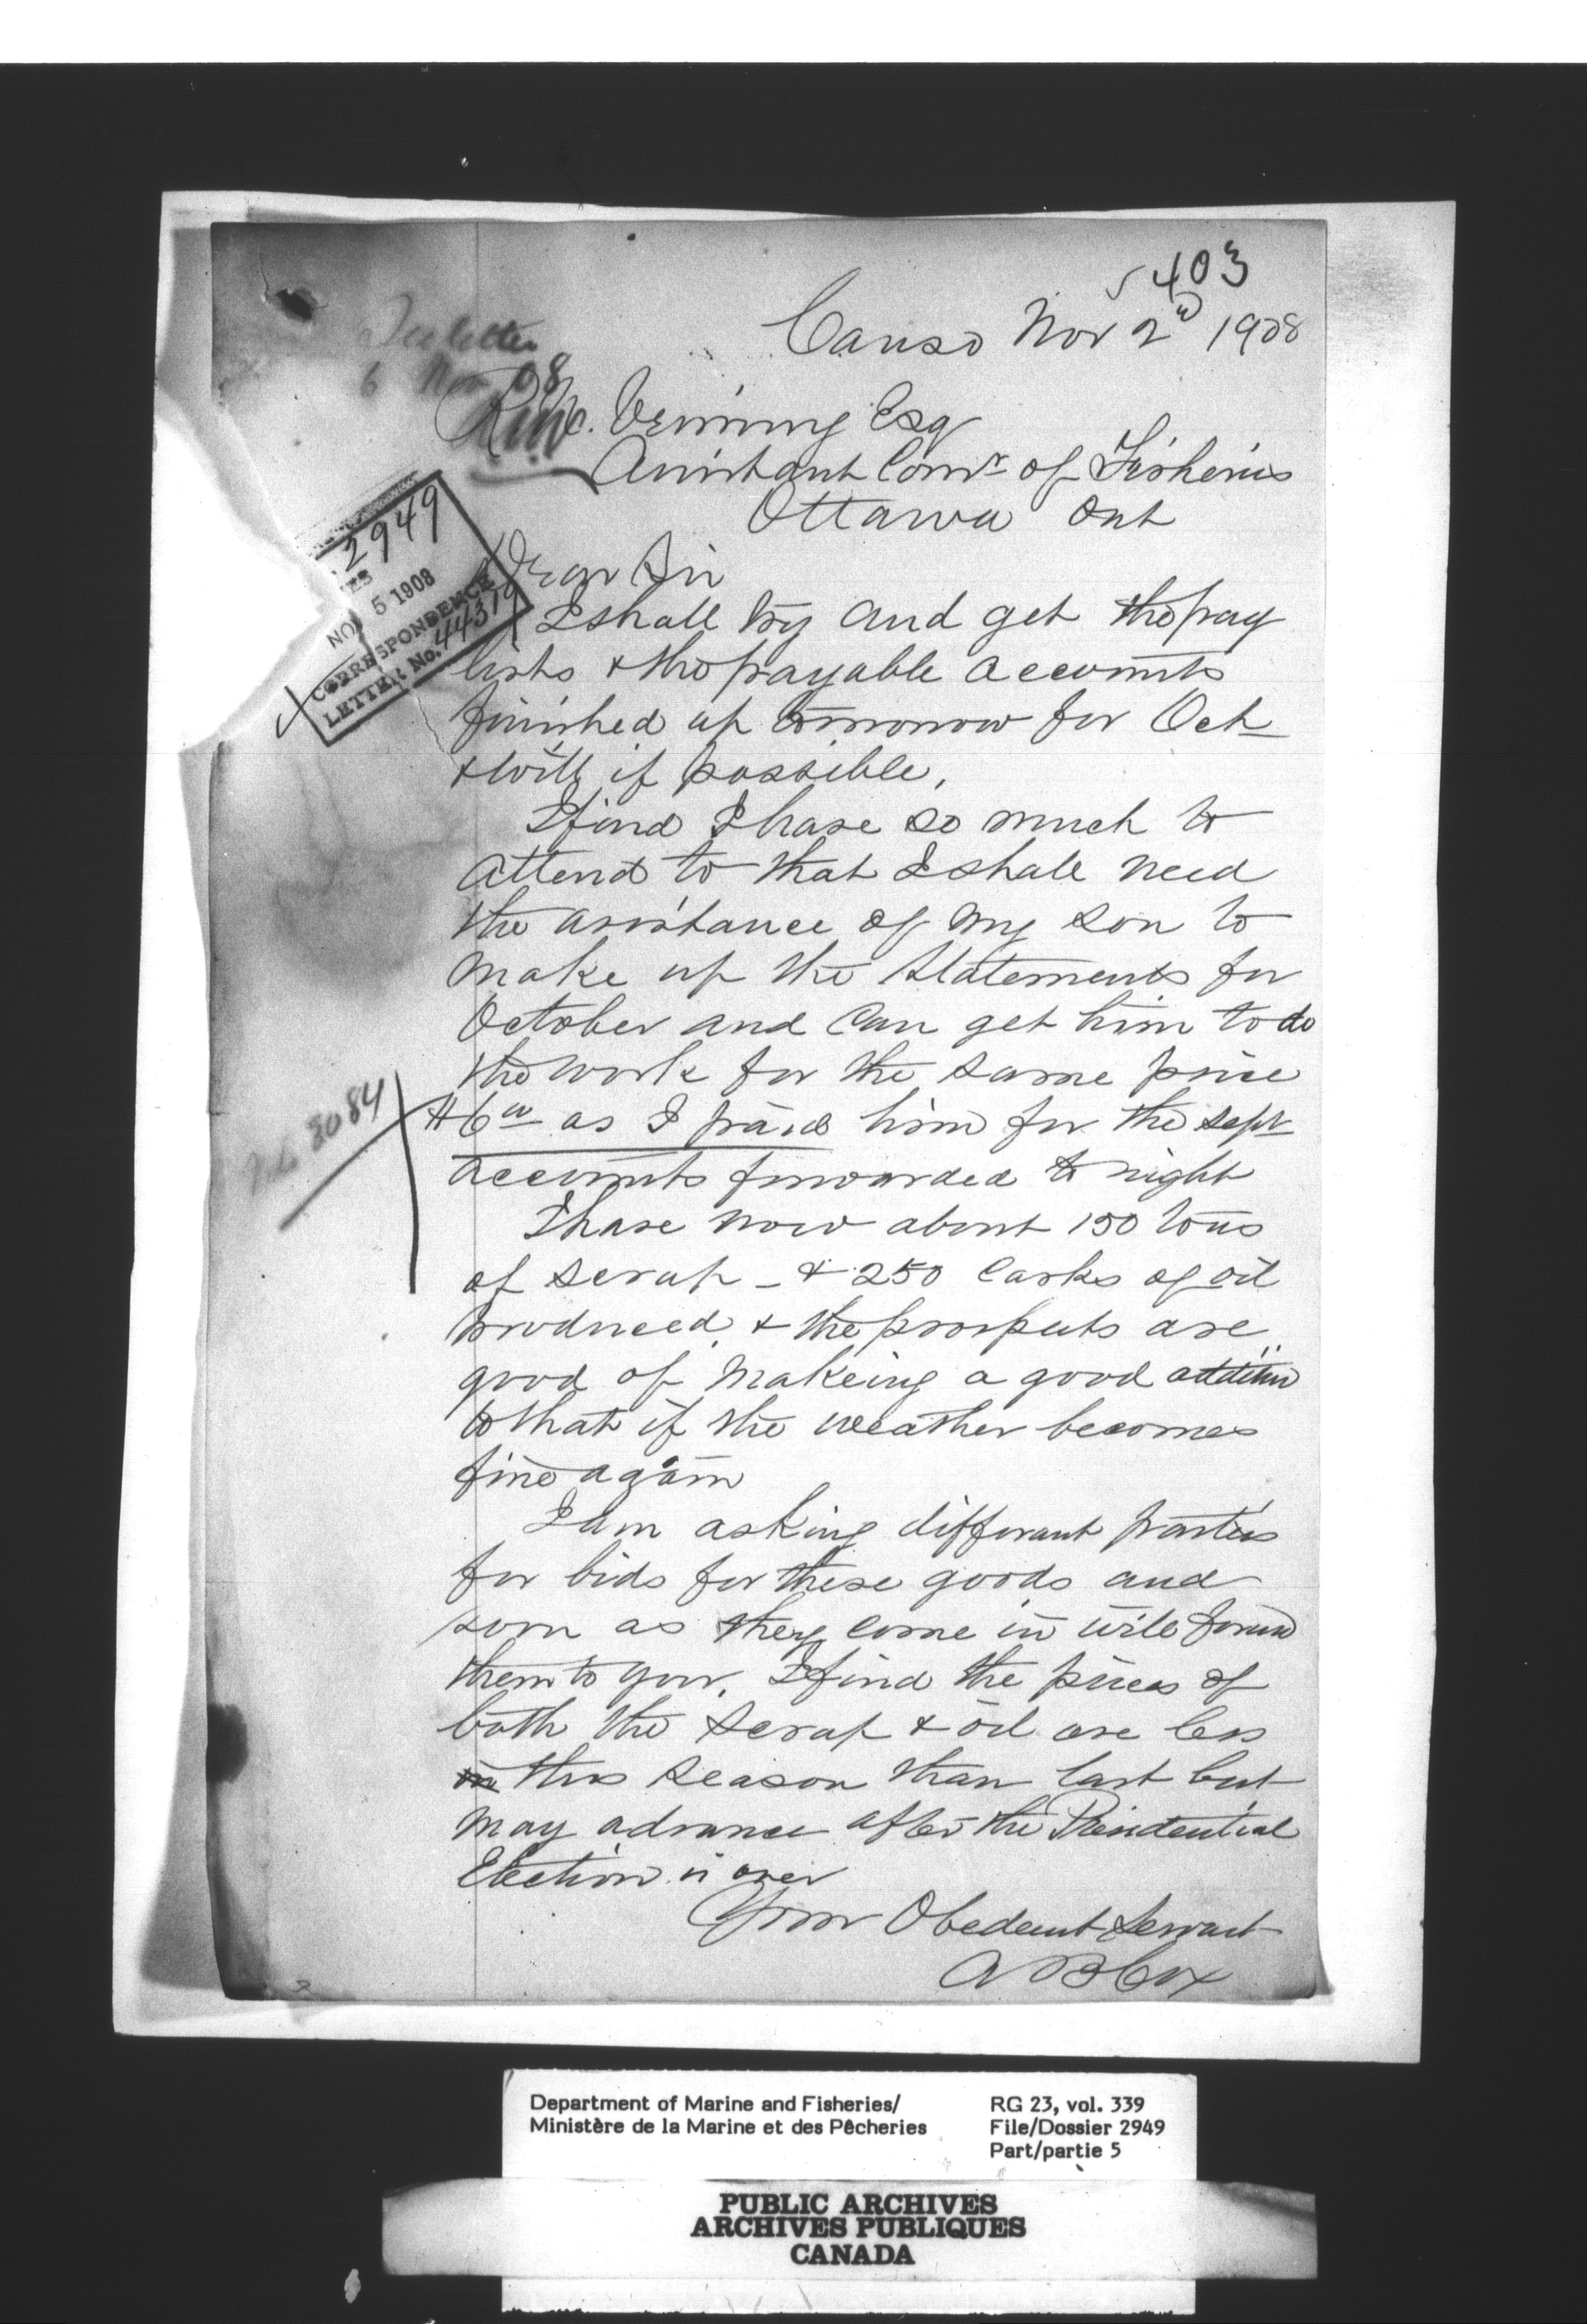 5403
Canso Nov 2nd 1908
See letter
6 Nov. 08
R.N. Venning Esq
Assistant Comr of Fisheries
Ottawa Ont
2949
ES
NOV 5 1908
CORRESPONDENCE
LETTER No. 44319
Dear Sir
I shall try and get the pay
lists & the payable accounts
finished up tomorrow for Oct
& will if possible.
I find I have so much to
attend to that I shall need
the asistance of my son to
make up the statements for
October and can get him to do
the work for the same price
8084
$6.00 as I paid him for the Sept
accounts forwarded to night
I have now about 150 tons
of scrap - & 250 casks of oil
produced & the prospects are
good of makeing a good addition
to that if the weather becomes
fine again
I am asking differant parties
for bids for these goods and
soon as they come in will forwd
them to you. I find the prices of
both the scrap & oil are less
in this season than last but
may advance after the Presidential
Election is over
Your Obedeent Servant
A B Cox
Department of Marine and Fisheries/
Ministère de la Marine et des Pêcheries
RG 23, vol. 339
File/Dossier 2949
Part/partie 5
PUBLIC ARCHIVES
ARCHIVES PUBLIQUES
CANADA